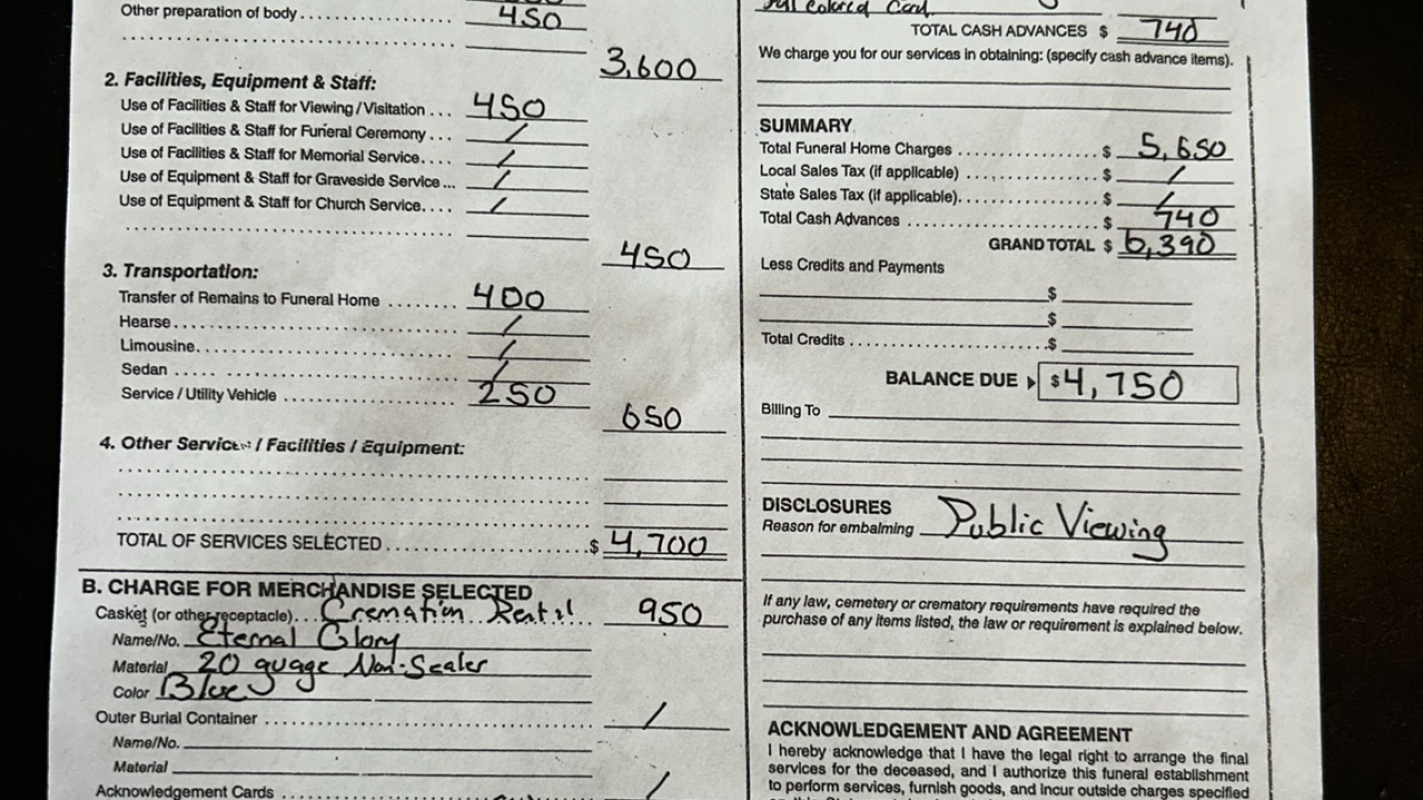 Other preparation of body .......... 450
3,600
2. Facilities, Equipment & Staff:
Use of Facilities & Staff for Viewing / Visitation ... 450
Use of Facilities & Staff for Funeral Ceremony ... /
Use of Facilities & Staff for Memorial Service.... /
Use of Equipment & Staff for Graveside Service ... /
Use of Equipment & Staff for Church Service.... /
450
3. Transportation:
Transfer of Remains to Funeral Home ........ 400
Hearse .......... /
Limousine .......... /
Sedan .......... /
Service / Utility Vehicle .......... 250
650
4. Other Services / Facilities / Equipment:
TOTAL OF SERVICES SELECTED .......... $ 4,700
B. CHARGE FOR MERCHANDISE SELECTED
Casket (or other receptacle)... Cremation Rental 950
Name/No. Eternal Glory
Material 20 guage Non-Sealer
Color Blue
Outer Burial Container .......... /
Name/No.
Material
Acknowledgement Cards .......... /
Colored Card
TOTAL CASH ADVANCES $ 740
We charge you for our services in obtaining: (specify cash advance items).
SUMMARY
Total Funeral Home Charges .......... $ 5,650
Local Sales Tax (if applicable) .......... $ /
State Sales Tax (if applicable) .......... $ /
Total Cash Advances .......... $ 740
GRAND TOTAL $ 6,390
Less Credits and Payments
$
$
Total Credits .......... $
BALANCE DUE ▸ $4,750
Billing To
DISCLOSURES
Reason for embalming Public Viewing
If any law, cemetery or crematory requirements have required the
purchase of any items listed, the law or requirement is explained below.
ACKNOWLEDGEMENT AND AGREEMENT
I hereby acknowledge that I have the legal right to arrange the final
services for the deceased, and I authorize this funeral establishment
to perform services, furnish goods, and incur outside charges specified